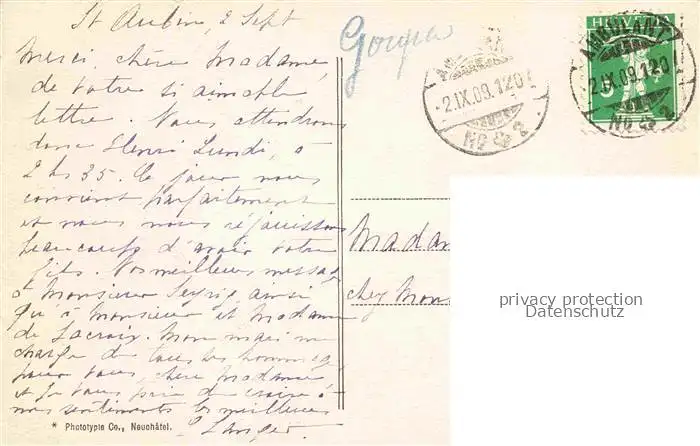 St Aubin, 2 Sept
Merci, chère Madame,
de votre si aimable
lettre. Nous attendrons
donc Henri Lundi, à
2 hs 35. Ce jour nous
convient parfaitement
et nous nous réjouissons
beaucoup d'avoir votre
fils. Nos meilleurs messages
à Monsieur Seyrig, ainsi
qu'à Monsieur et Madame
de Lacroix. Mon mari me
charge de tous ses hommages
pour vous, chère Madame,
et je vous prie de croire à
nos sentiments les meilleurs
Langer
* Phototypie Co., Neuchâtel.
AMBULANT
2.IX.09.120
No 2
HELVETIA
5
AMBULANT
2.IX.09.120
No 2
Madam
chez Mons
privacy protection
Datenschutz